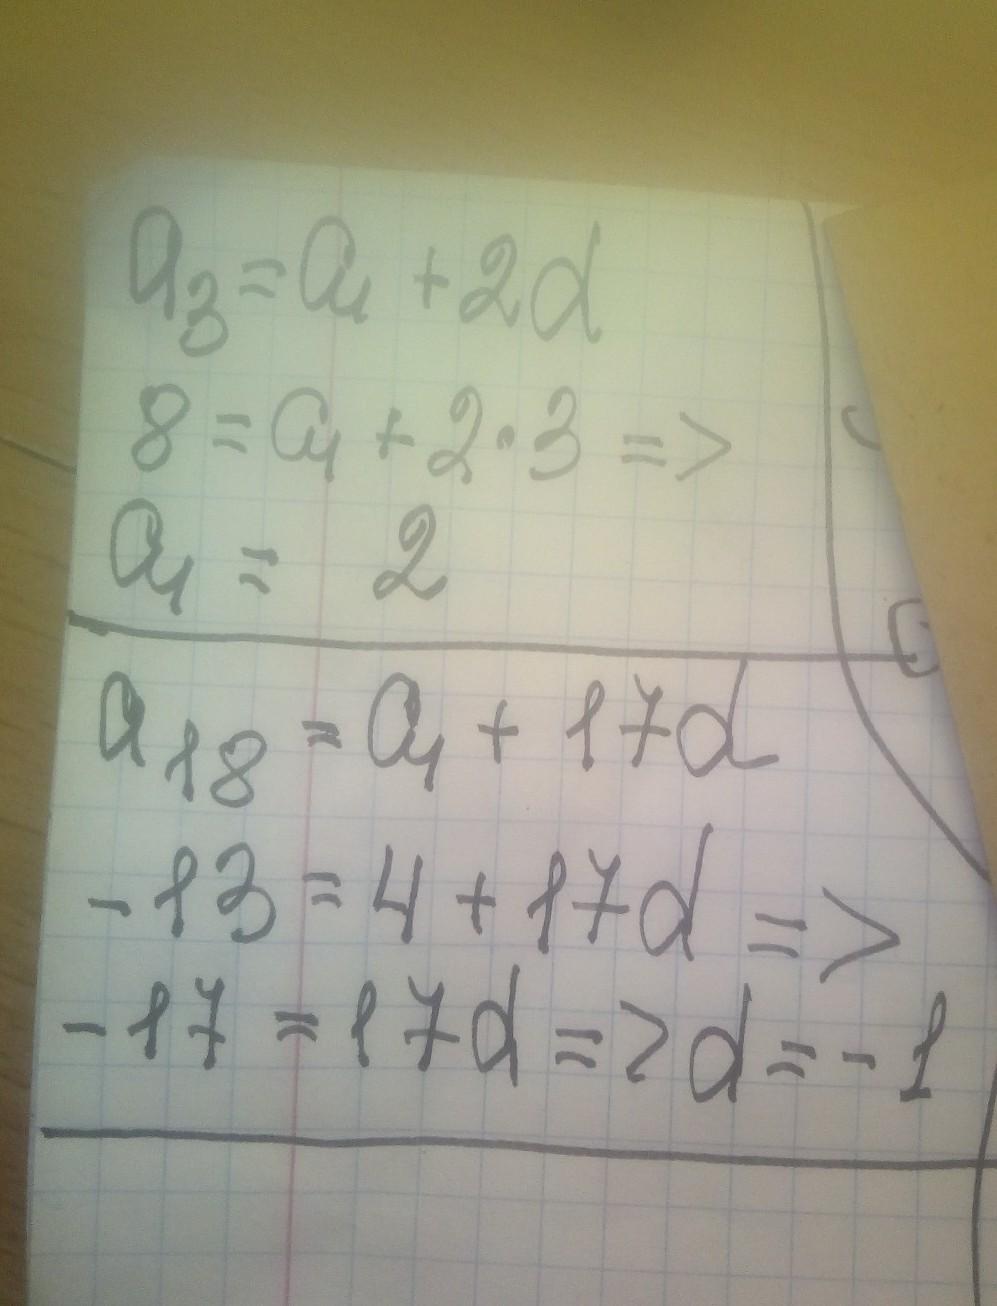 a₃ = a₁ + 2d
8 = a₁ + 2·3 =>
a₁ = 2
a₁₈ = a₁ + 17d
-13 = 4 + 17d =>
-17 = 17d => d = -1